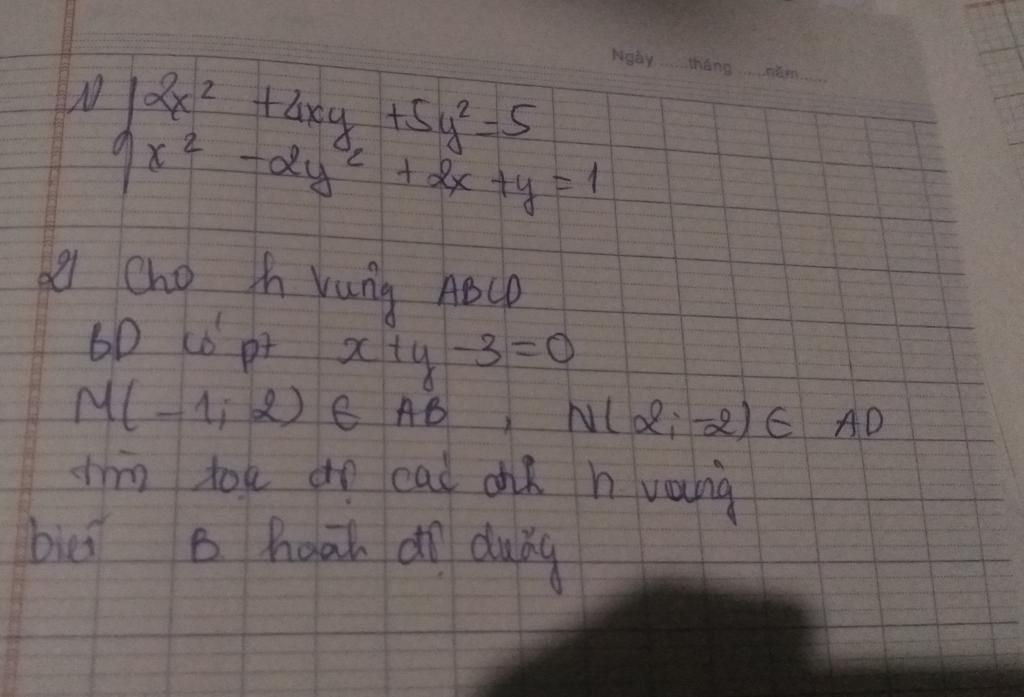 Ngày ......tháng ......năm......
1) { 2x² + 4xy + 5y² = 5
x² - 2y² + 2x + y = 1
2) Cho h vuông ABCD
BD có pt x + y - 3 = 0
M( -1; 2) ∈ AB , N( 2; -2) ∈ AD
tìm toạ độ các đỉnh h vuông
biết B hoành độ dương